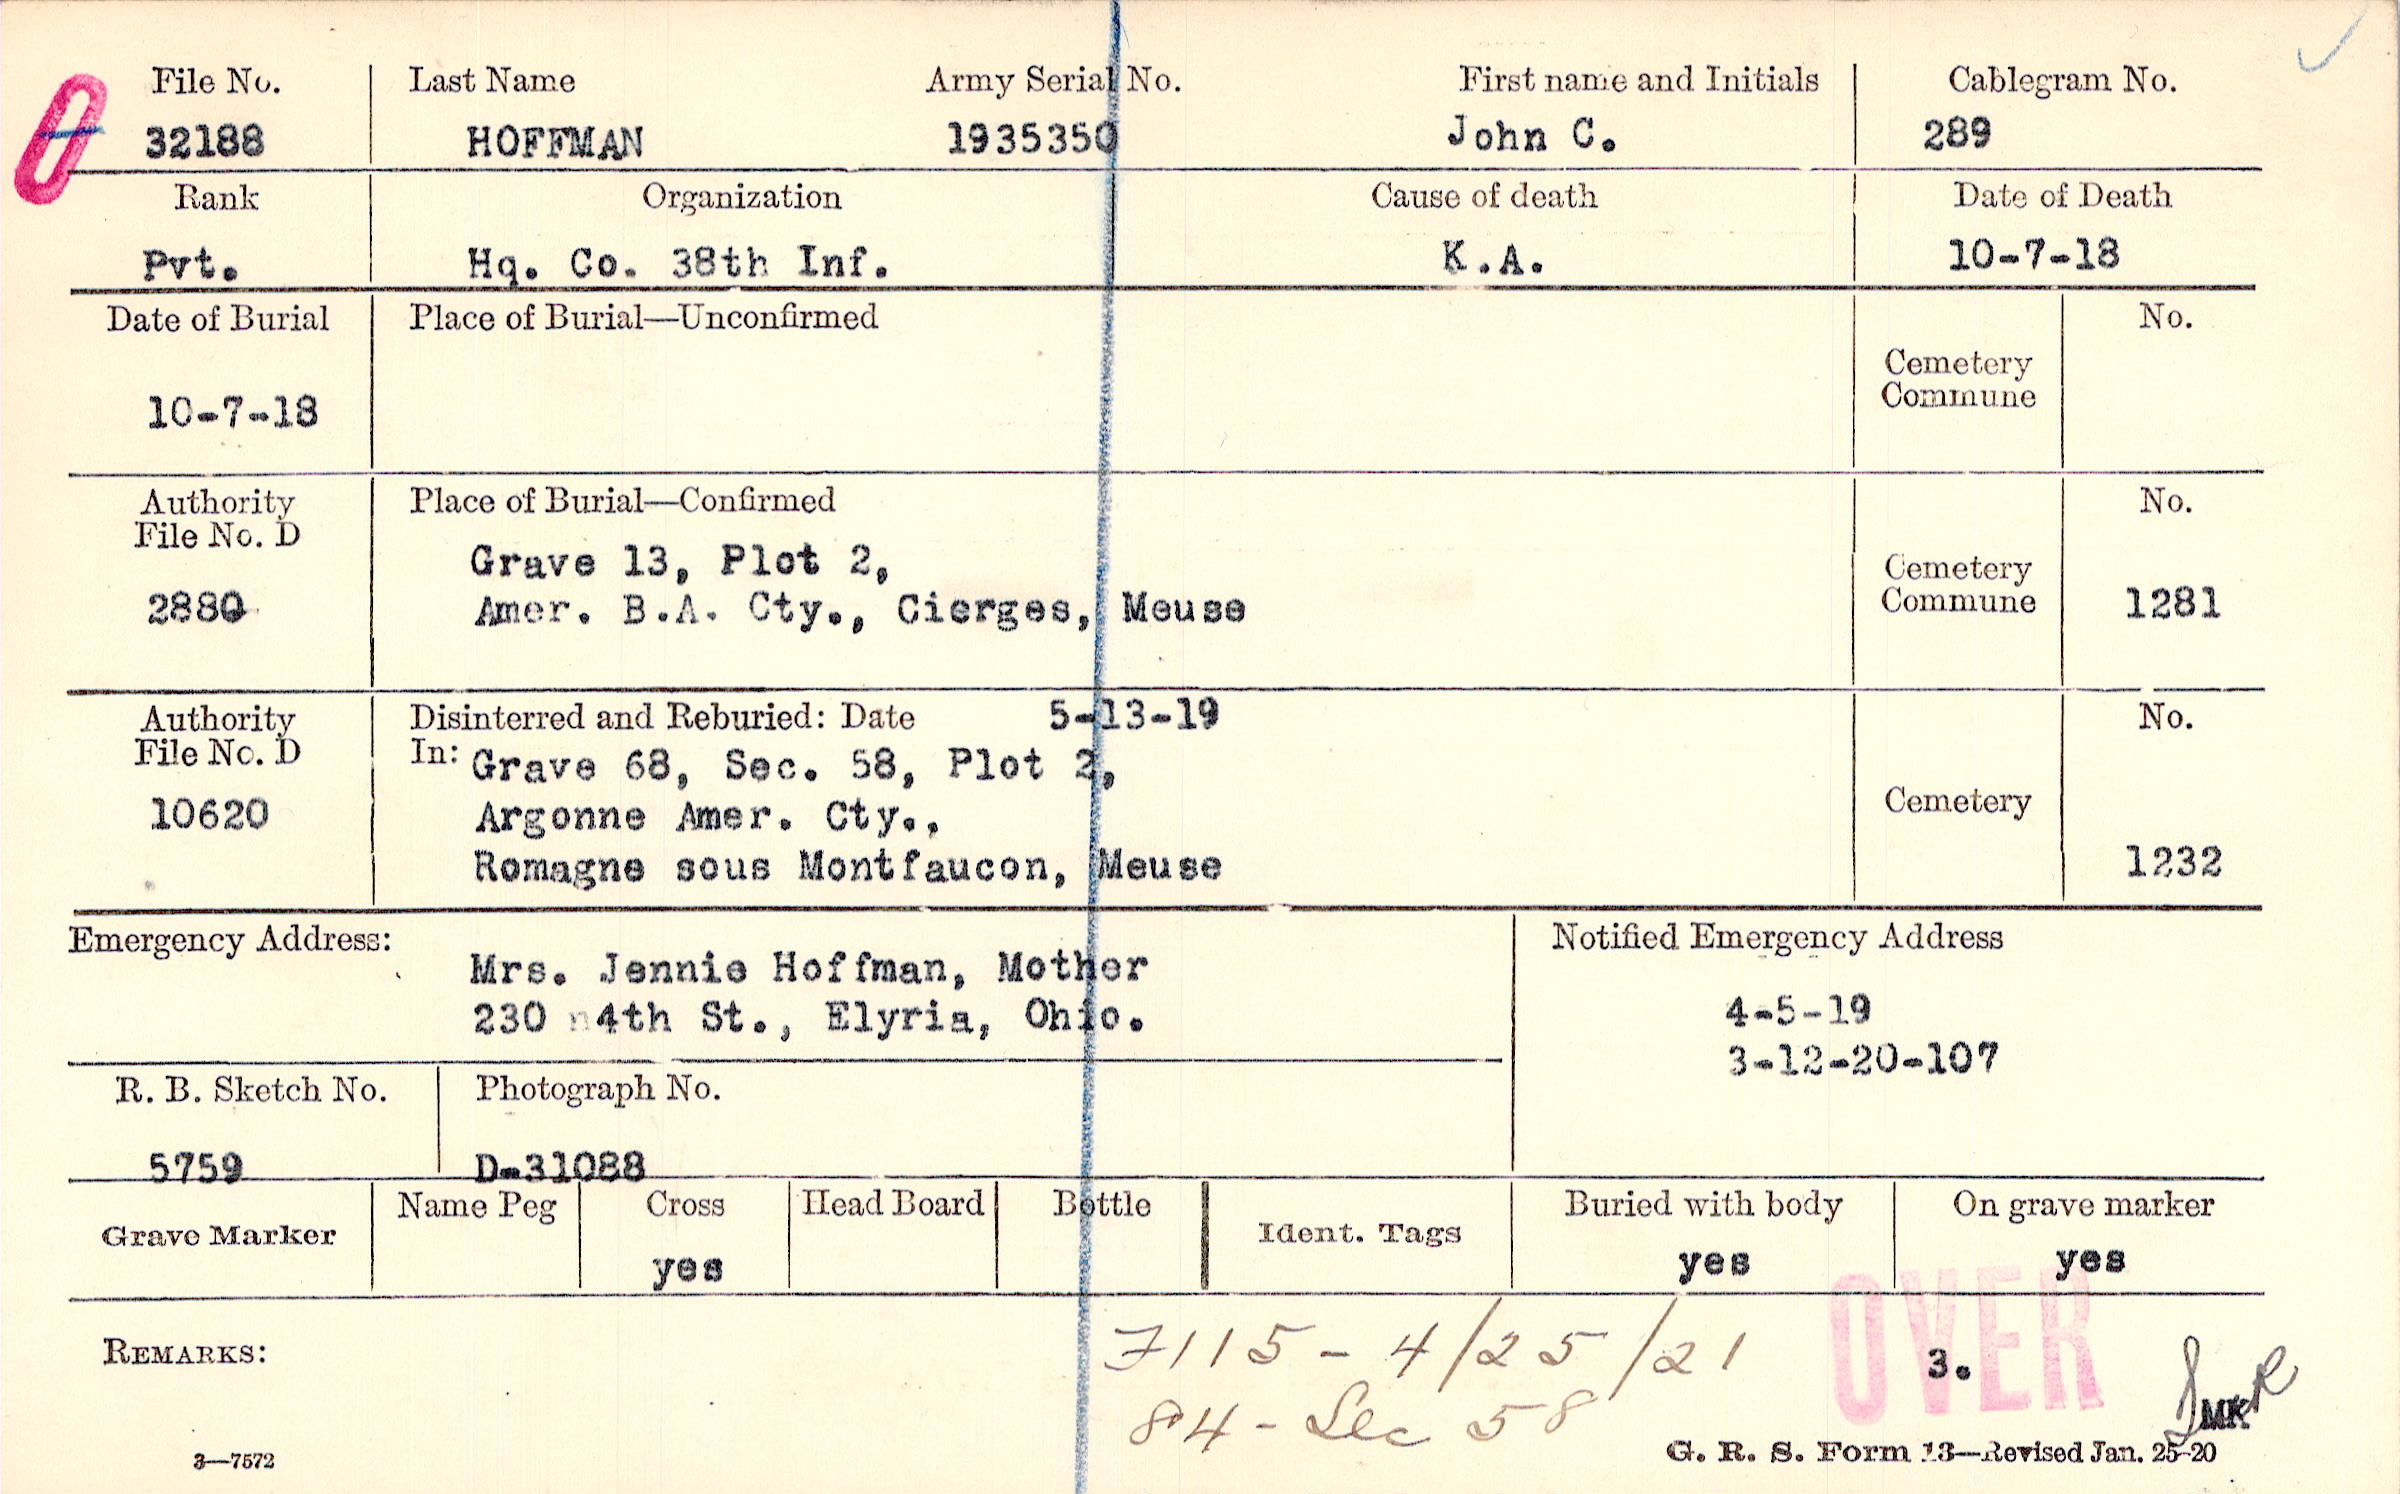 File No. Last Name Army Serial No. First name and Initials Cablegram No.
32188 HOFFMAN 1935350 John C. 289
Rank Organization Cause of death Date of Death
Pvt. Hq. Co. 38th Inf. K.A. 10-7-18
Date of Burial Place of Burial—Unconfirmed No.
Cemetery
Commune
10-7-18
Authority Place of Burial—Confirmed No.
File No. D
Grave 13, Plot 2,
Cemetery
2880 Amer. B.A. Cty., Cierges, Meuse Commune 1281
Authority Disinterred and Reburied: Date 5-13-19 No.
File No. D In: Grave 68, Sec. 58, Plot 2,
10620 Argonne Amer. Cty., Cemetery
Romagne sous Montfaucon, Meuse 1232
Emergency Address: Notified Emergency Address
Mrs. Jennie Hoffman, Mother
230 4th St., Elyria, Ohio. 4-5-19
3-12-20-107
R. B. Sketch No. Photograph No.
5759 D-31088
Grave Marker Name Peg Cross Head Board Bottle Ident. Tags Buried with body On grave marker
yes yes yes
OVER
REMARKS: 7115 - 4/25/21 3.
84 - Sec 58
MK
3—7572 G. R. S. Form 13—Revised Jan. 25-20